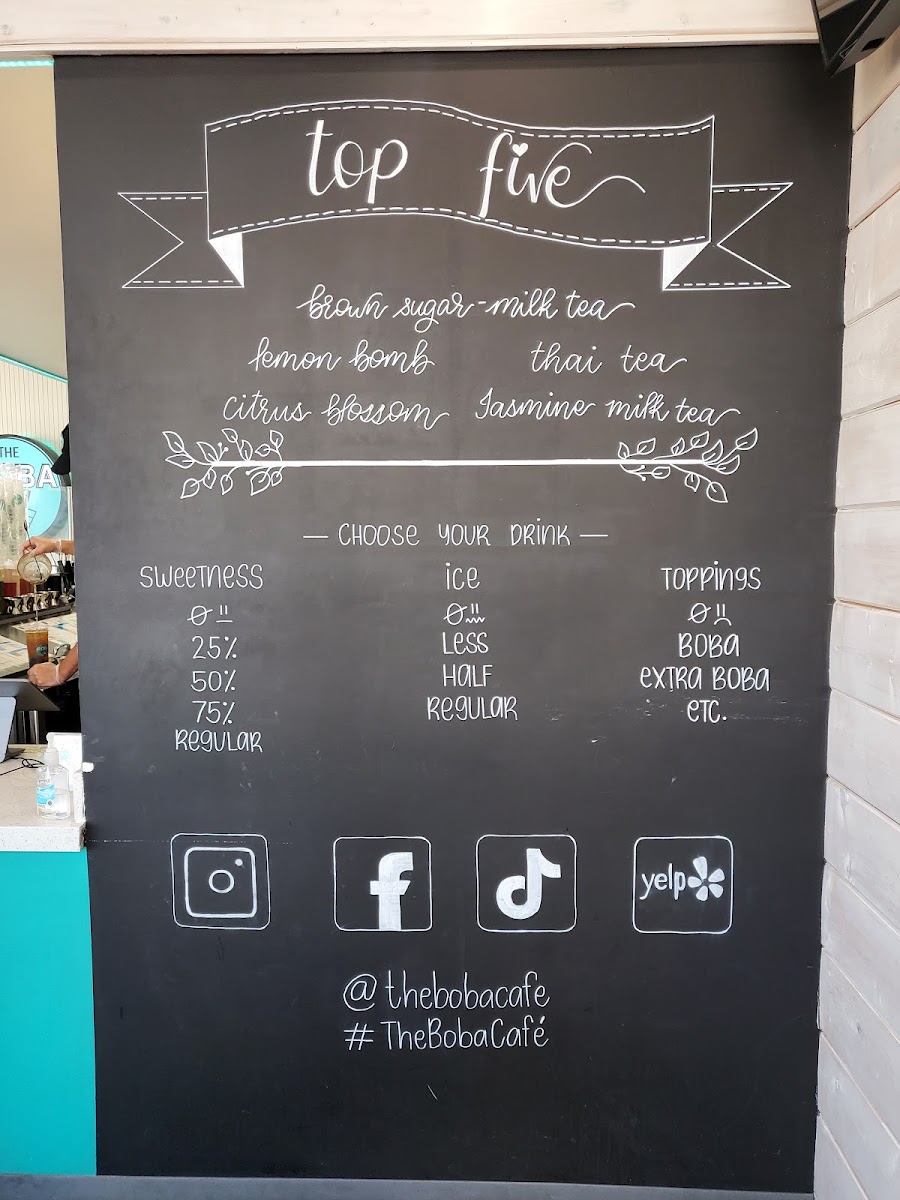 top five
brown sugar-milk tea
lemon bomb thai tea
citrus blossom Jasmine milk tea
— CHOOSE YOUR DRINK —
SWEETNESS
0
25%
50%
75%
REGULAR
ICE
0
LESS
HALF
REGULAR
TOPPINGS
0
BOBA
EXTRA BOBA
ETC.
yelp
@thebobacafe
#TheBobaCafé
THE
BA